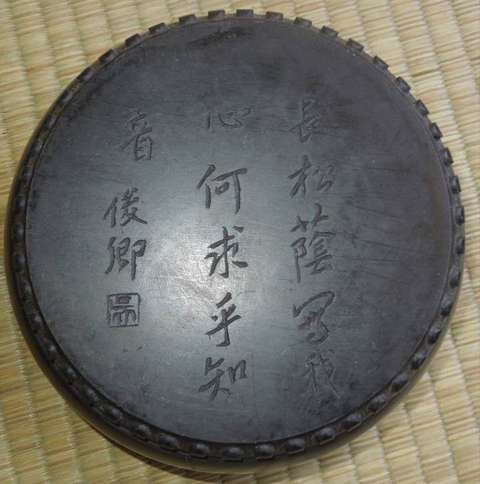 長松蔭写我
心何求乎知
音 俊卿